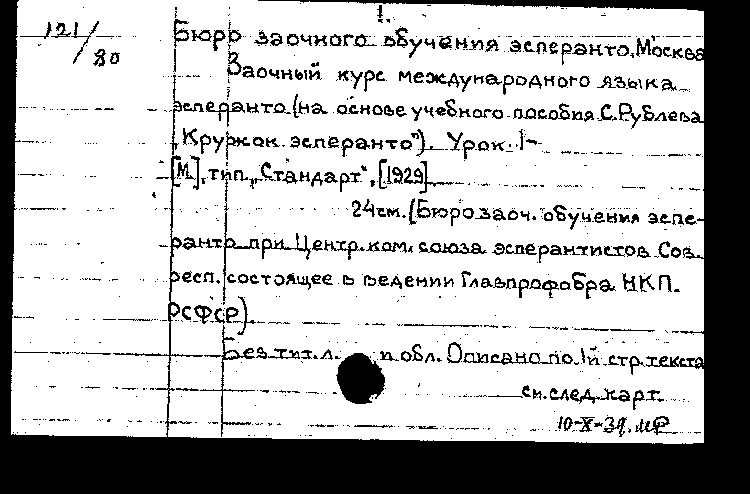 1.
121/80
Бюро заочного обучения эсперанто, Москва
Заочный курс международного языка
эсперанто (на основе учебного пособия С. Рублева
„Кружок эсперанто"). Урок 1-
[М], тип. „Стандарт", [1929]
24 см. (Бюро заоч. обучения эспе-
ранто при Центр. ком. союза эсперантистов Сов.
респ. состоящее в ведении Главпрофобра НКП.
РСФСР).
Без тит. л. и обл. Описано по 1й стр. текста
см. след. карт.
10-X-39. МР